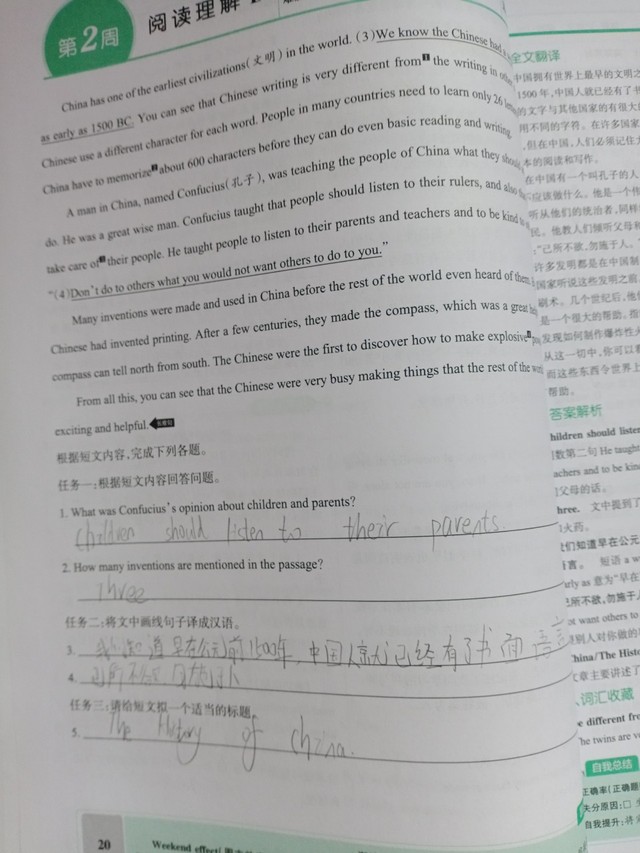 第2周
阅读理解
China has one of the earliest civilizations(文明) in the world. (3)We know the Chinese had
as early as 1500 BC. You can see that Chinese writing is very different from the writing in
Chinese use a different character for each word. People in many countries need to learn only 26
China have to memorize about 600 characters before they can do even basic reading and writing.
A man in China, named Confucius(孔子), was teaching the people of China what they should
do. He was a great wise man. Confucius taught that people should listen to their rulers, and also
take care of their people. He taught people to listen to their parents and teachers and to be kind
"(4)Don't do to others what you would not want others to do to you."
Many inventions were made and used in China before the rest of the world even heard of them.
Chinese had invented printing. After a few centuries, they made the compass, which was a great
compass can tell north from south. The Chinese were the first to discover how to make explosive
From all this, you can see that the Chinese were very busy making things that the rest of the
exciting and helpful.
根据短文内容,完成下列各题。
任务一:根据短文内容回答问题。
1. What was Confucius's opinion about children and parents?
Children should listen to their parents.
2. How many inventions are mentioned in the passage?
Three
任务二:将文中画线句子译成汉语。
3. 我们知道早在公元前1500年,中国人就已经有了书面语言
4.
任务三:请给短文拟一个适当的标题。
5. The History of China.
20
Weekend effect
全文翻译
中国拥有世界上最早的文明之
1500年,中国人就已经有了书
的文字与其他国家的有很大
用不同的字符。在许多国家
,但在中国,人们必须记住大
本的阅读和写作。
在中国有一个叫孔子的人
应该做什么。他是一个伟
听从他们的统治者,同样
民。他教人们倾听父母和
"己所不欲,勿施于人。
许多发明都是在中国制
国家听说这些发明之前
刷术。几个世纪后,他们
是一个很大的帮助。指
发现如何制作爆炸性火
从这一切中,你可以看
而这些东西令世界上
帮助。
答案解析
hildren should listen
数第二句 He taught
achers and to be kind
父母的话。
hree. 文中提到了
火药。
我们知道早在公元
言。 短语 a
rly as 意为"早在
己所不欲,勿施于人
ot want others to
别人对你做的
China/The Histo
文章主要讲述了
词汇收藏
e different fro
he twins are ve
自我总结
正确率(正确题
失分原因:□
自我提升: